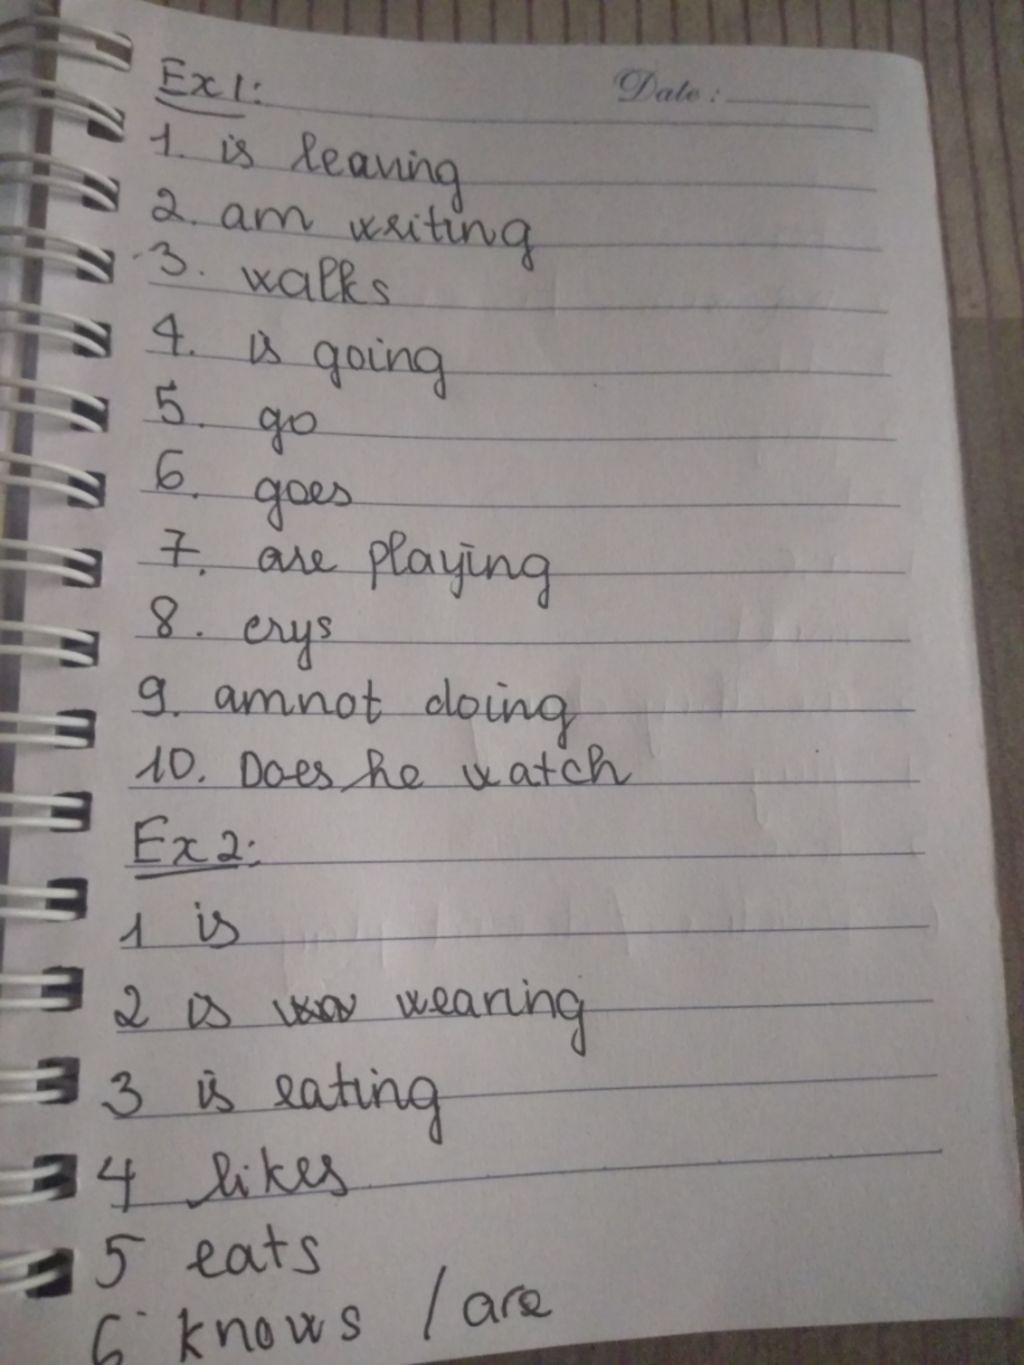 Ex 1:
Date:
1. is leaving
2. am writing
3. walks
4. is going
5. go
6. goes
7. are playing
8. crys
9. amnot doing
10. Does he watch
Ex 2:
1 is
2 is wearing
3 is eating
4 likes
5 eats
6 knows / are